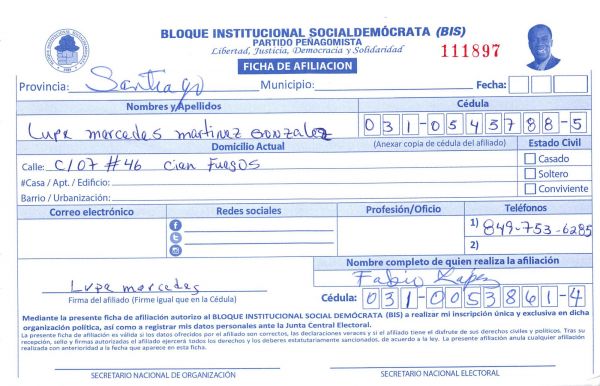 BLOQUE INSTITUCIONAL SOCIALDEMÓCRATA (BIS)
PARTIDO PEÑAGOMISTA
Libertad, Justicia, Democracia y Solidaridad
111897
FICHA DE AFILIACION
Provincia: Santiago Municipio: Fecha:
Nombres y Apellidos Cédula
Lupe mercedes martinez Gonzalez 031-0545788-5
Domicilio Actual (Anexar copia de cédula del afiliado) Estado Civil
Calle: C/07 #46 Cien Fuegos Casado
#Casa / Apt. / Edificio: Soltero
Barrio / Urbanización: Conviviente
Correo electrónico Redes sociales Profesión/Oficio Teléfonos
1) 849-753-6285
2)
Nombre completo de quien realiza la afiliación
Lupe mercedes Fabio Lopez
Firma del afiliado (Firme igual que en la Cédula) Cédula: 031-0053861-4
Mediante la presente ficha de afiliación autorizo al BLOQUE INSTITUCIONAL SOCIAL DEMÓCRATA (BIS) a realizar mi inscripción única y exclusiva en dicha
organización política, así como a registrar mis datos personales ante la Junta Central Electoral.
La presente ficha de afiliación es válida si los datos ofrecidos por el afiliado son correctos, las declaraciones veraces y si el afiliado tiene el disfrute de sus derechos civiles y políticos. Tras su
recepción, sello y firmas autorizadas el afiliado ejercerá todos los derechos y los deberes estatutariamente sancionados, de acuerdo a la ley. La presente afiliación anula cualquier afiliación
realizada con anterioridad a la fecha que aparece en esta ficha.
SECRETARIO NACIONAL DE ORGANIZACIÓN SECRETARIO NACIONAL ELECTORAL